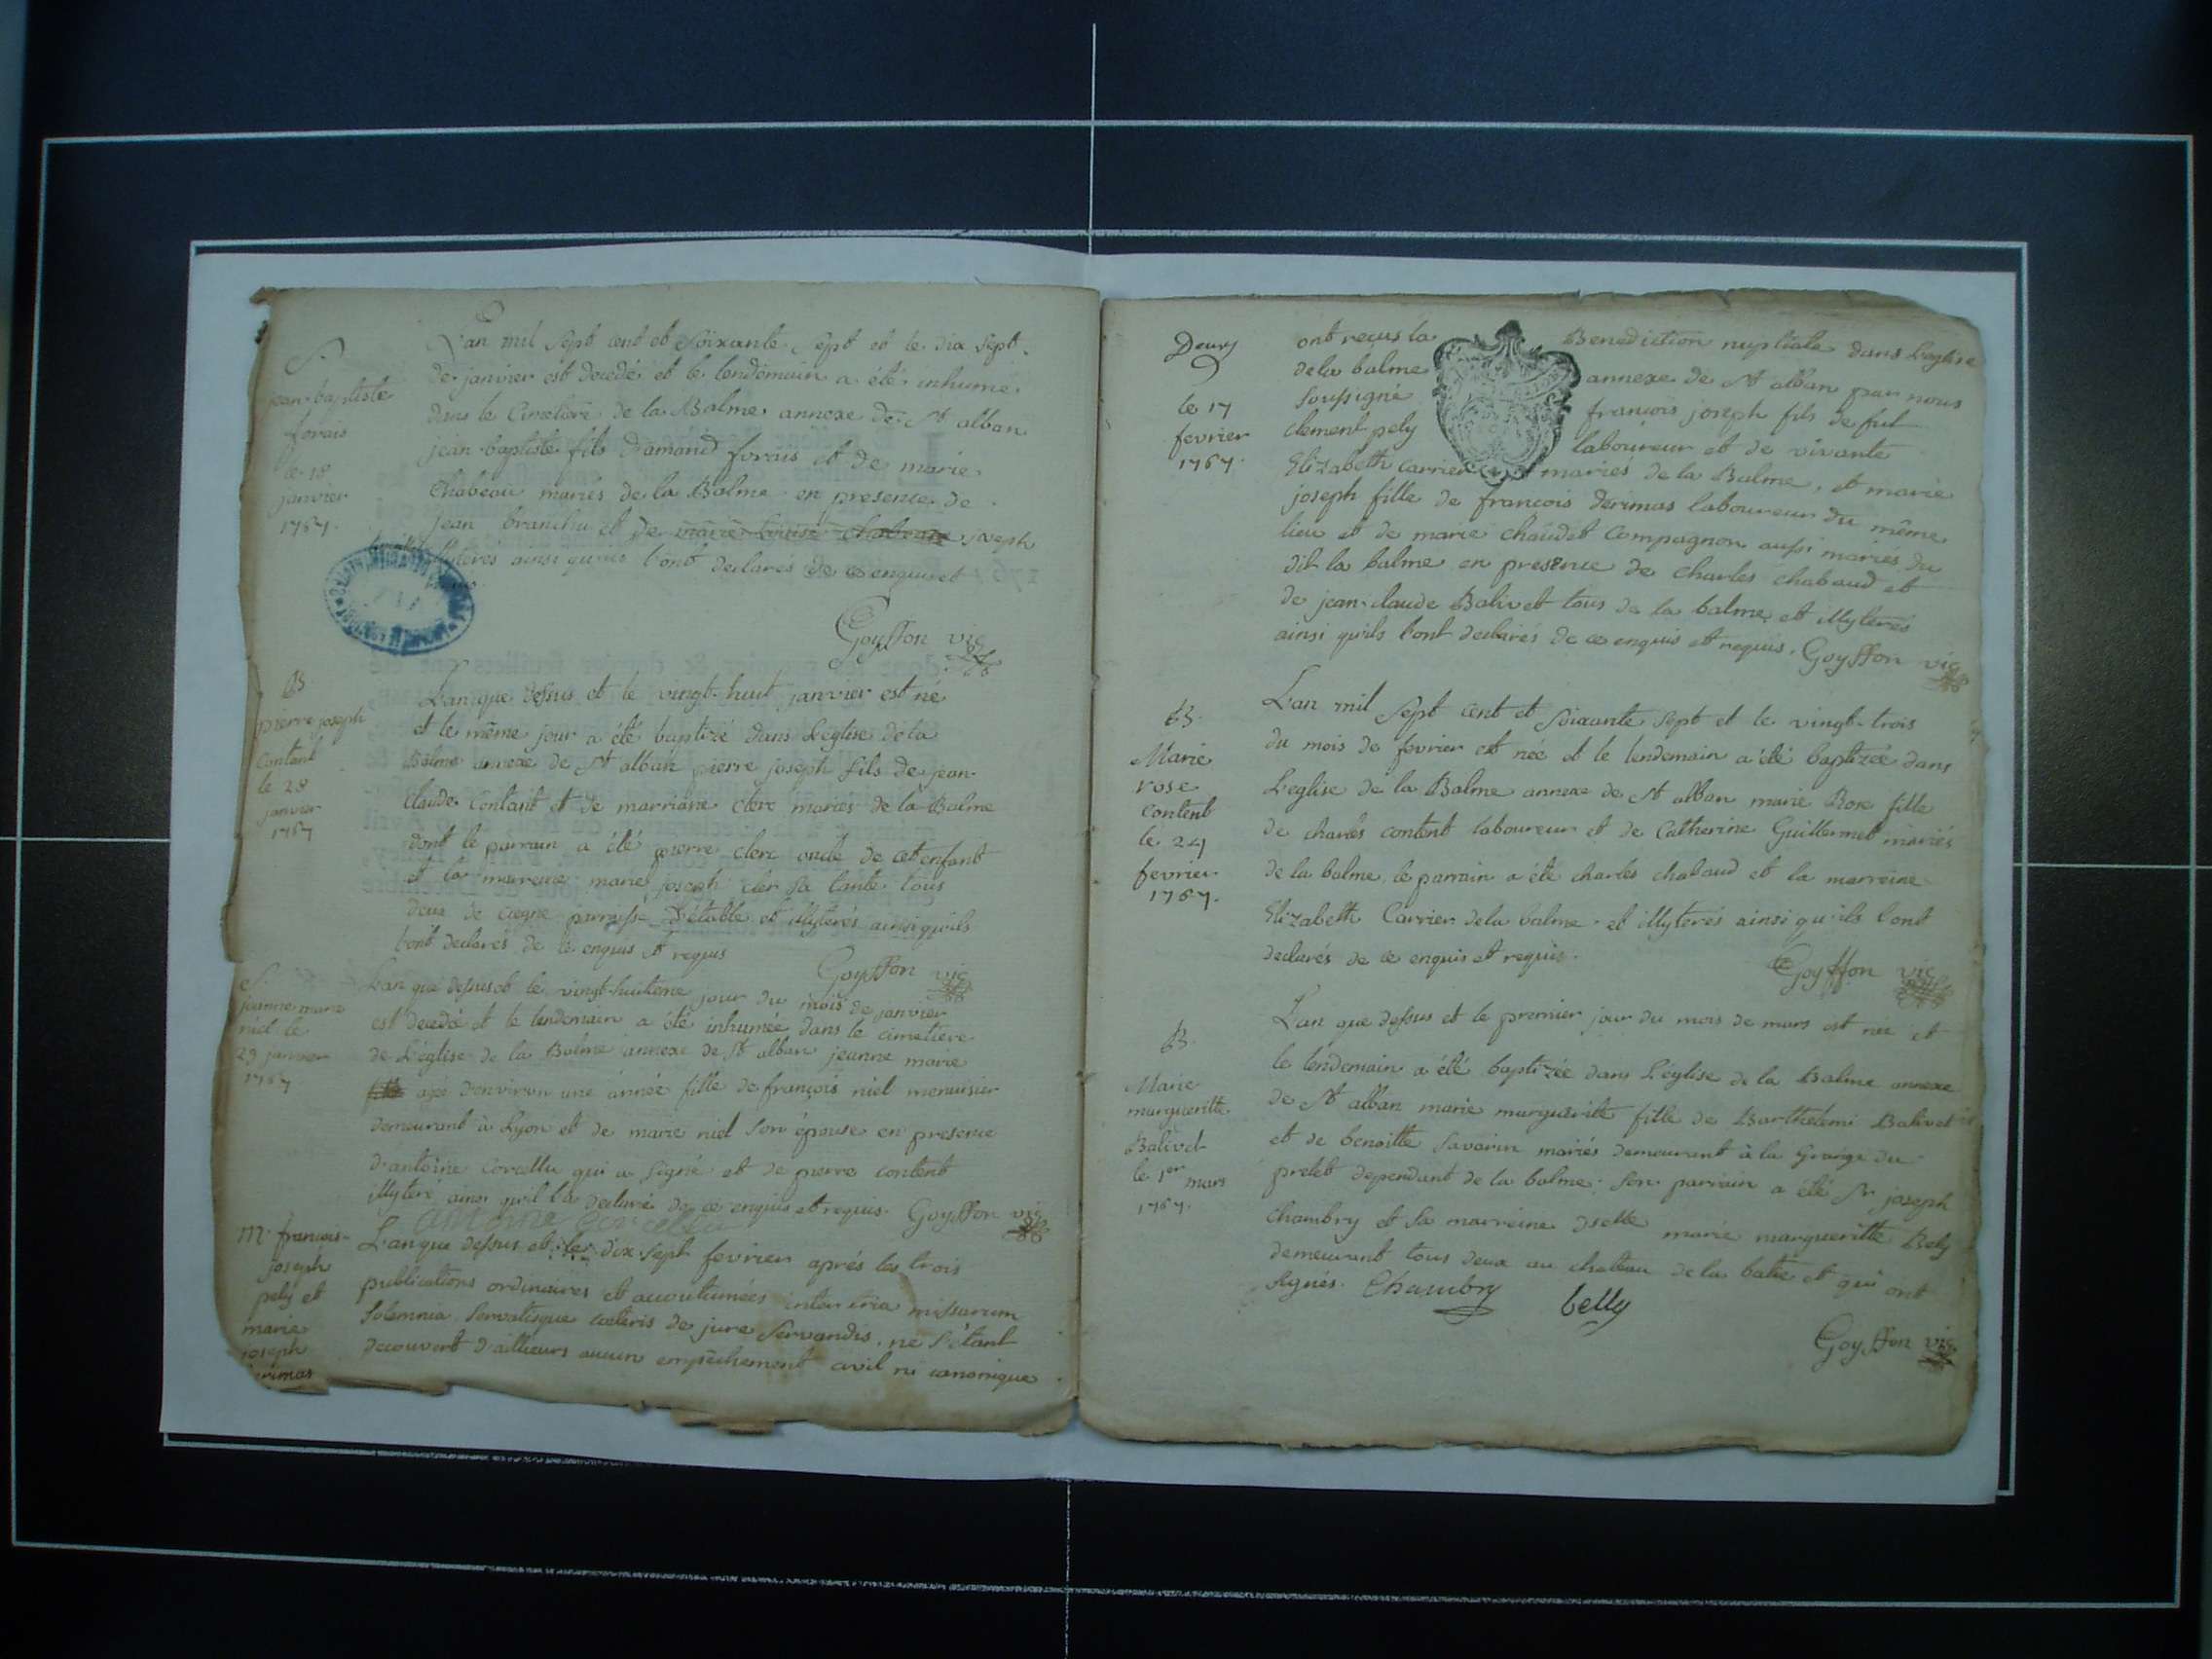 S
jean-baptiste
forais
le 18
janvier
1767.
L'an mil sept cent et soixante sept et le dix sept
de janvier est decedé et le lendemain a été inhumé
dans le Cimetiere de la Balme annexe de St alban
jean-baptiste fils damand forais et de marie
Chabeau mariés de la Balme en presence de
jean branchu et de marie Louise chabeaux joseph
illyterés ainsi qu'ils l'ont declarés de ce enquis et
Goyffon vic
B
pierre joseph
Contant
le 28
janvier
1767
L'an que dessus et le vingt-huit janvier est né
et le même jour a été baptizé dans L'eglise de la
Balme annexe de St alban pierre joseph fils de jean-
claude Contant et de marriane clerc mariés de la Balme
dont le parrain a été pierre clerc oncle de cet enfant
et la marreine marie joseph clerc sa tante tous
deux de parroisse et illyterés ainsi qu'ils
l'ont declarés de ce enquis et requis
Goyffon vic
S.
jeanne marie
niel le
29 janvier
1767
L'an que dessus et le vingt-huitieme jour du mois de janvier
est decedé et le lendemain a été inhumée dans le cimetiere
de L'église de la Balme annexe de St alban jeanne marie
agée d'environ une année fille de françois niel menuisier
demeurant à Lyon et de marie niel son épouse en presence
d'antoine Corcellu qui a signé et de pierre content
illyteré ainsi qu'il l'a declaré de ce enquis et requis. Goyffon vic
antoine Corcellu
M. françois-
joseph
pely et
marie
joseph
erimas
L'an que dessus et le dix-sept fevrier aprés les trois
publications ordinaires et accoutumées inter tria missarum
solemnia servatisque cæteris de jure servandis, ne s'étant
decouvert d'ailleurs aucun empêchement civil ni canonique
Deury
le 17
fevrier
1767.
ont reçus la Benediction nuptiale dans L'eglise
de la balme annexe de St alban par nous
soussigné françois joseph fils de fut
clement pely laboureur et de vivante
Elizabeth Carrier mariés de la Balme, et marie
joseph fille de françois derimas laboureur du même
lieu et de marie chaudet Compagnon aussi mariés du
dit la balme en presence de charles chabaud et
de jean-claude Balivet tous de la balme et illyterés
ainsi qu'ils l'ont declarés de ce enquis et requis. Goyffon vic
B.
Marie
rose
content
le 24
fevrier
1767.
L'an mil sept cent et soixante sept et le vingt-trois
du mois de fevrier est née et le lendemain a été baptizée dans
L'eglise de la Balme annexe de St alban marie Rose fille
de charles content laboureur et de Catherine Guillermet mariés
de la balme, le parrain a été charles chabaud et la marreine
Elizabeth Carrier de la balme et illyterés ainsi qu'ils l'ont
declarés de ce enquis et requis.
Goyffon vic
B.
Marie
margueritte
Balivet
le 1er mars
1767.
L'an que dessus et le premier jour du mois de mars est née et
le lendemain a été baptizée dans L'eglise de la Balme annexe
de St alban marie margueritte fille de Barthelemi Balivet
et de benoitte Savarin mariés demeurant à la Grange du
prelet dependant de la balme. son parrain a été Sr joseph
Chambry et sa marreine dselle marie margueritte Bely
demeurant tous deux au chateau de la batie et qui ont
signés. Chambry belly
Goyffon vic.